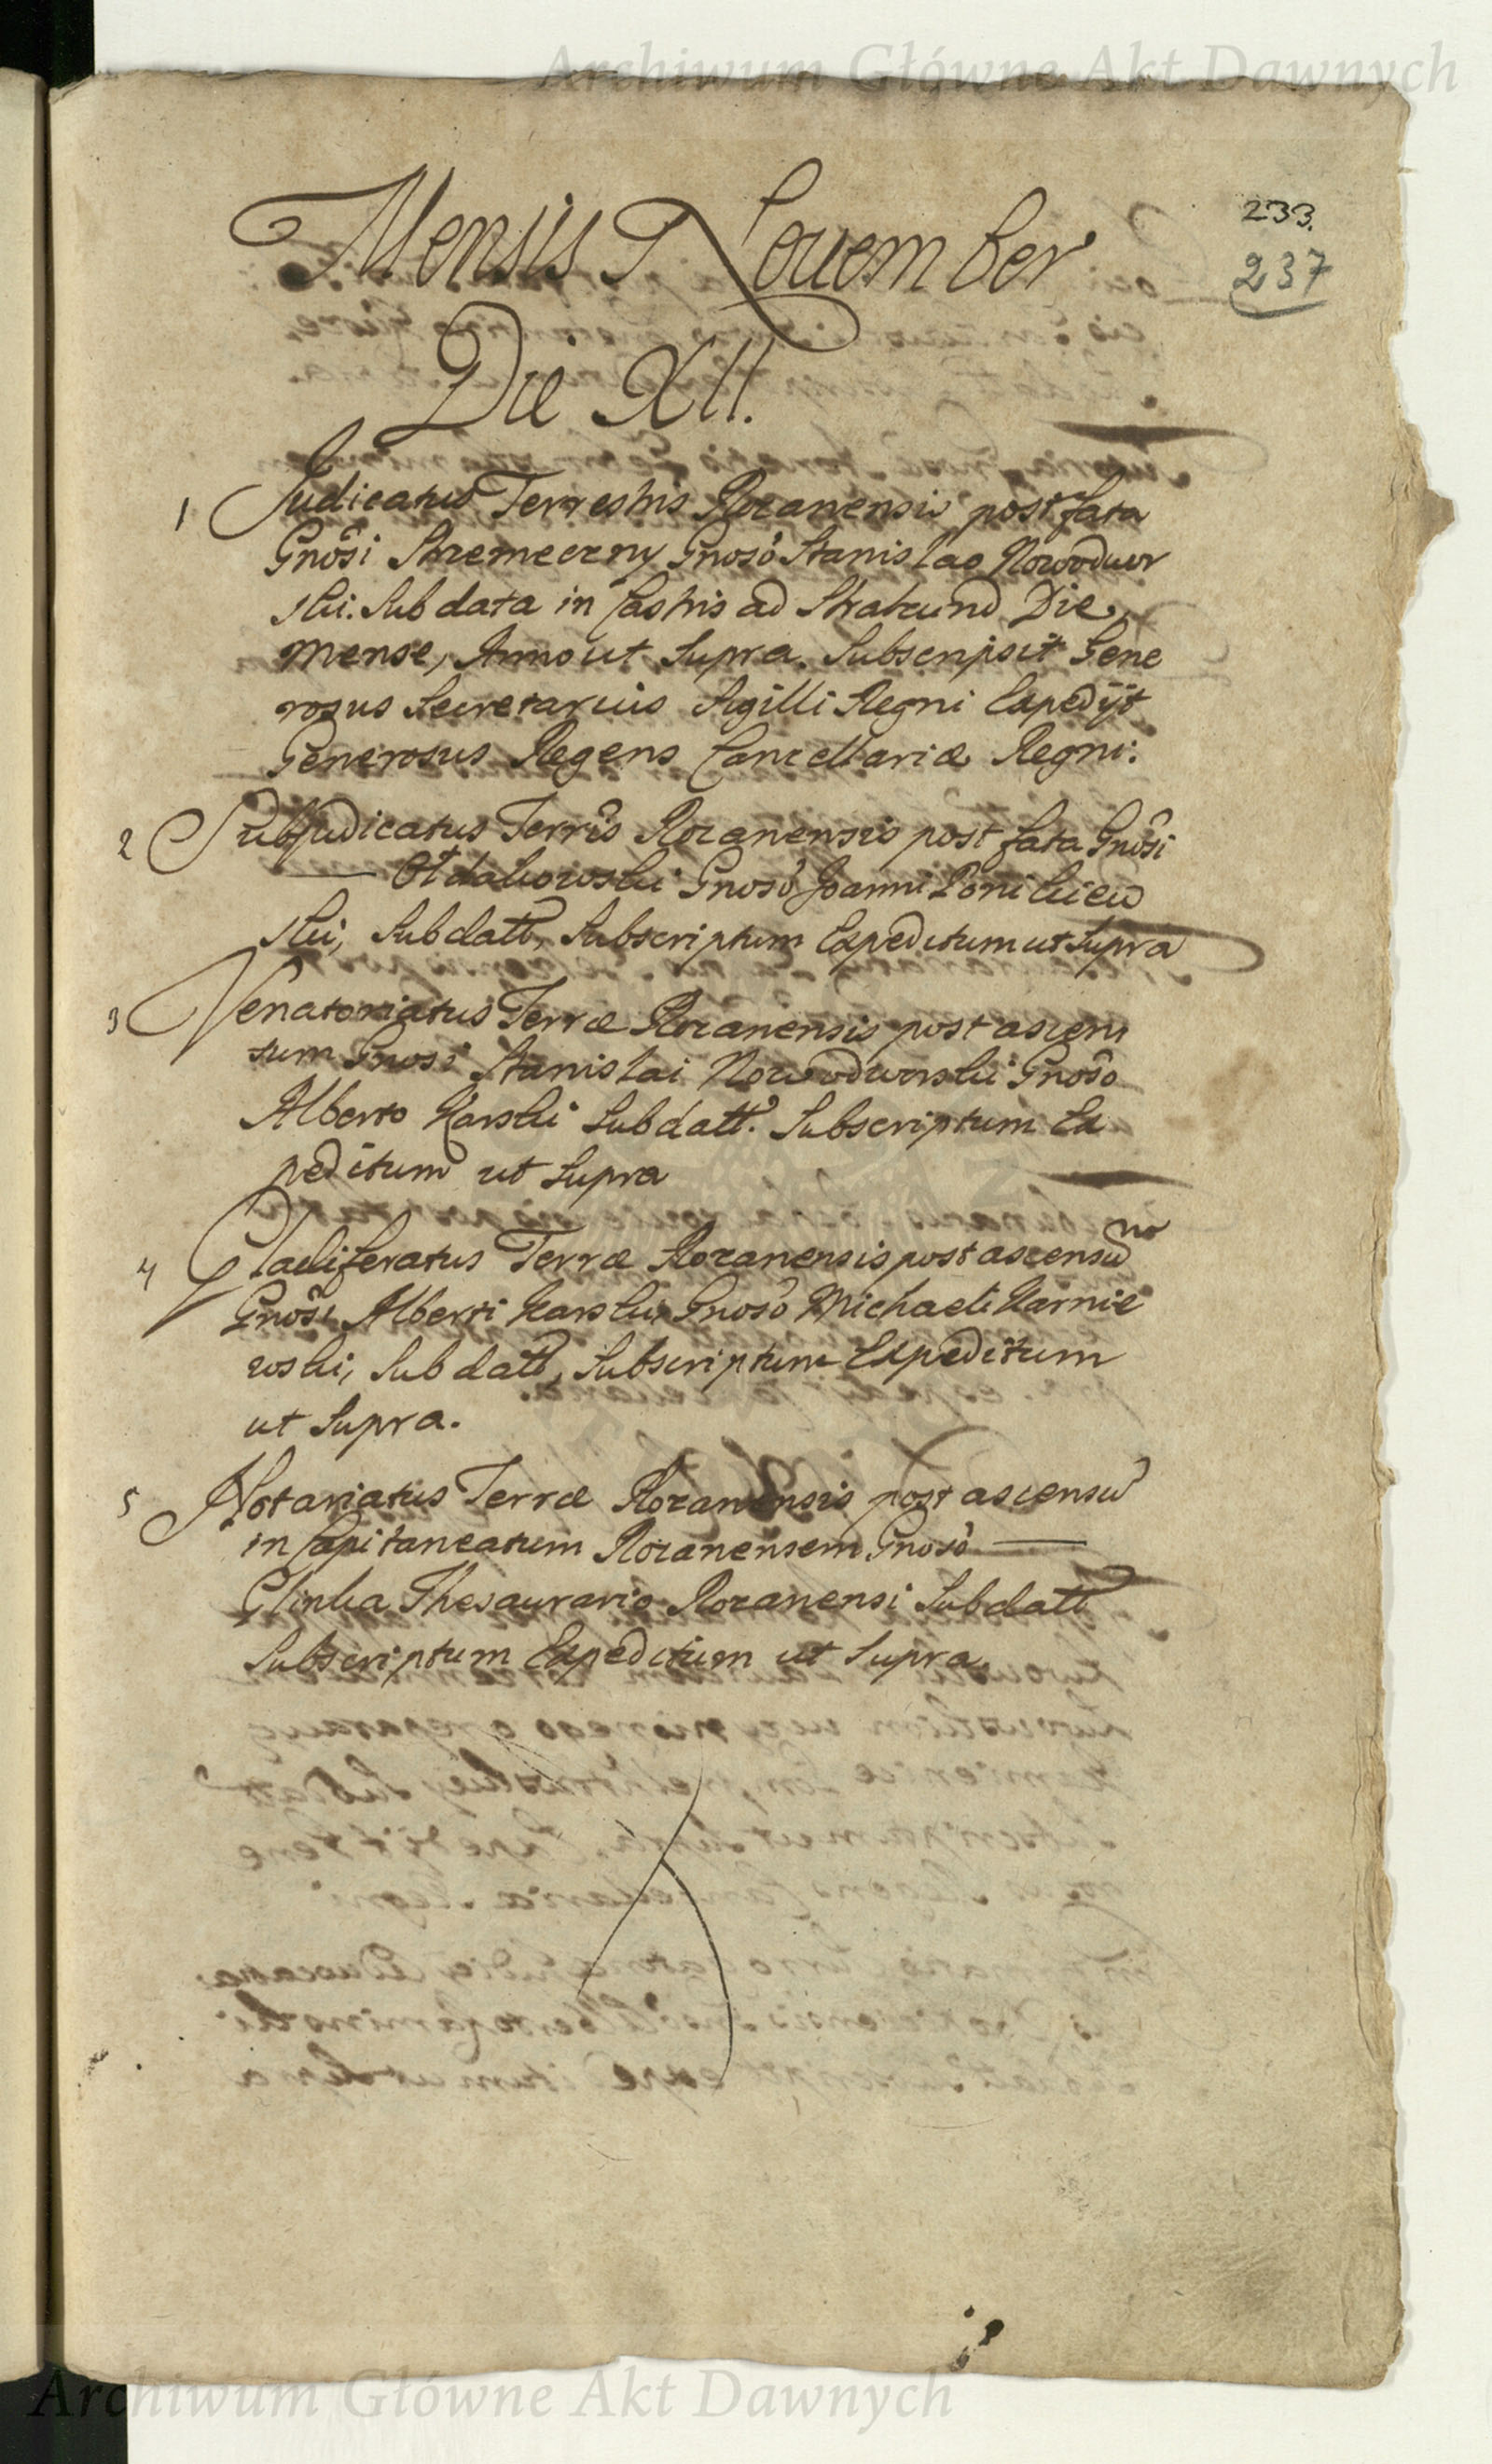 Archiwum Główne Akt Dawnych
233.
237
Mensis November
Die XII.
1 Judicatus Terrestris Rozanensis post fata
Gnosi Strzemeczny Gnoso Stanislao Nowodwor
ski. Sub data in Castris ad Stralzund Die,
mense, Anno ut Supra. Subscripsit Gene
rosus Secretarius Sigilli Regni Expedijt
Generosus Regens Cancellariæ Regni:
2 Subjudicatus Terris Rozanensis post fata Gnosi
— Ołdakowski Gnoso Joanni Ponikiew
ski, Sub datt, Subscriptum Expeditum ut Supra
3 Venatoriatus Terræ Rozanensis post ascen
sum Gnosi Stanislai Nowodworski Gnoso
Alberto Karski Sub datt. Subscriptum Ex
peditum ut Supra
4 Gladiferatus Terræ Rozanensis post ascensu
Gnosi Alberti Karski, Gnoso Michaeli Karnie
wski, Sub datt, Subscriptum Expeditum
ut Supra.
5 Notariatus Terræ Rozanensis post ascensu
in Capitaneatum Rozanensem Gnoso —
Glinka Thesaurario Rozanensi Sub datt
Subscriptum Expeditum ut Supra.
Archiwum Główne Akt Dawnych